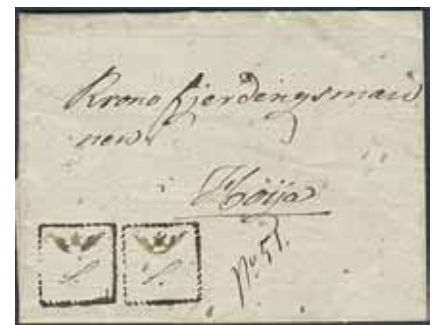 Krono fjerdingsman
nen
Höija
No 51.
S. S.